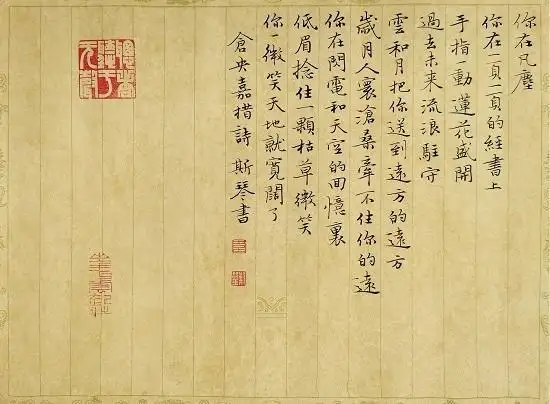 你在凡塵
你在一頁一頁的經書上
手指一動蓮花盛開
過去未來流浪駐守
雲和月把你送到遠方的遠方
歲月人裏滄桑牽不住你的遠
你在閃電和天空的回憶裏
低眉捻住一顆枯草微笑
你一微笑天地就寬闊了
倉央嘉措詩 斯琴書